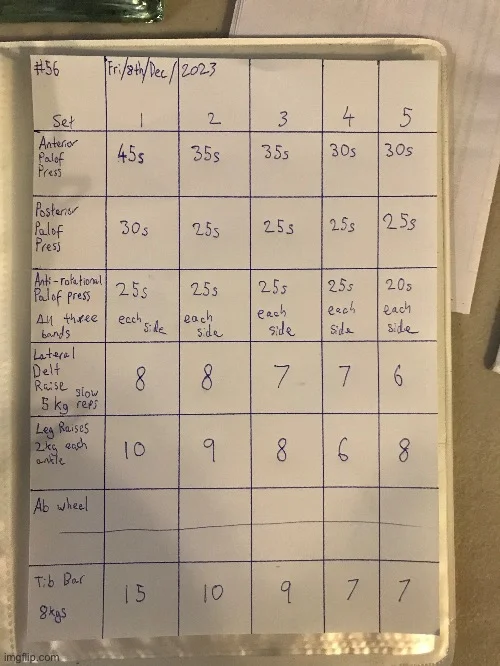 #56 Fri/8th/Dec/2023
Set 1 2 3 4 5
Anterior
Palof
Press
45s 35s 35s 30s 30s
Posterior
Palof
Press
30s 25s 25s 25s 25s
Anti-rotational
Palof press
All three
bands
25s each side 25s each side 25s each side 25s each side 20s each side
Lateral
Delt
Raise slow
5kg reps
8 8 7 7 6
Leg Raises
2kg each
ankle
10 9 8 6 8
Ab wheel
Tib Bar
8kgs
15 10 9 7 7
imgflip.com